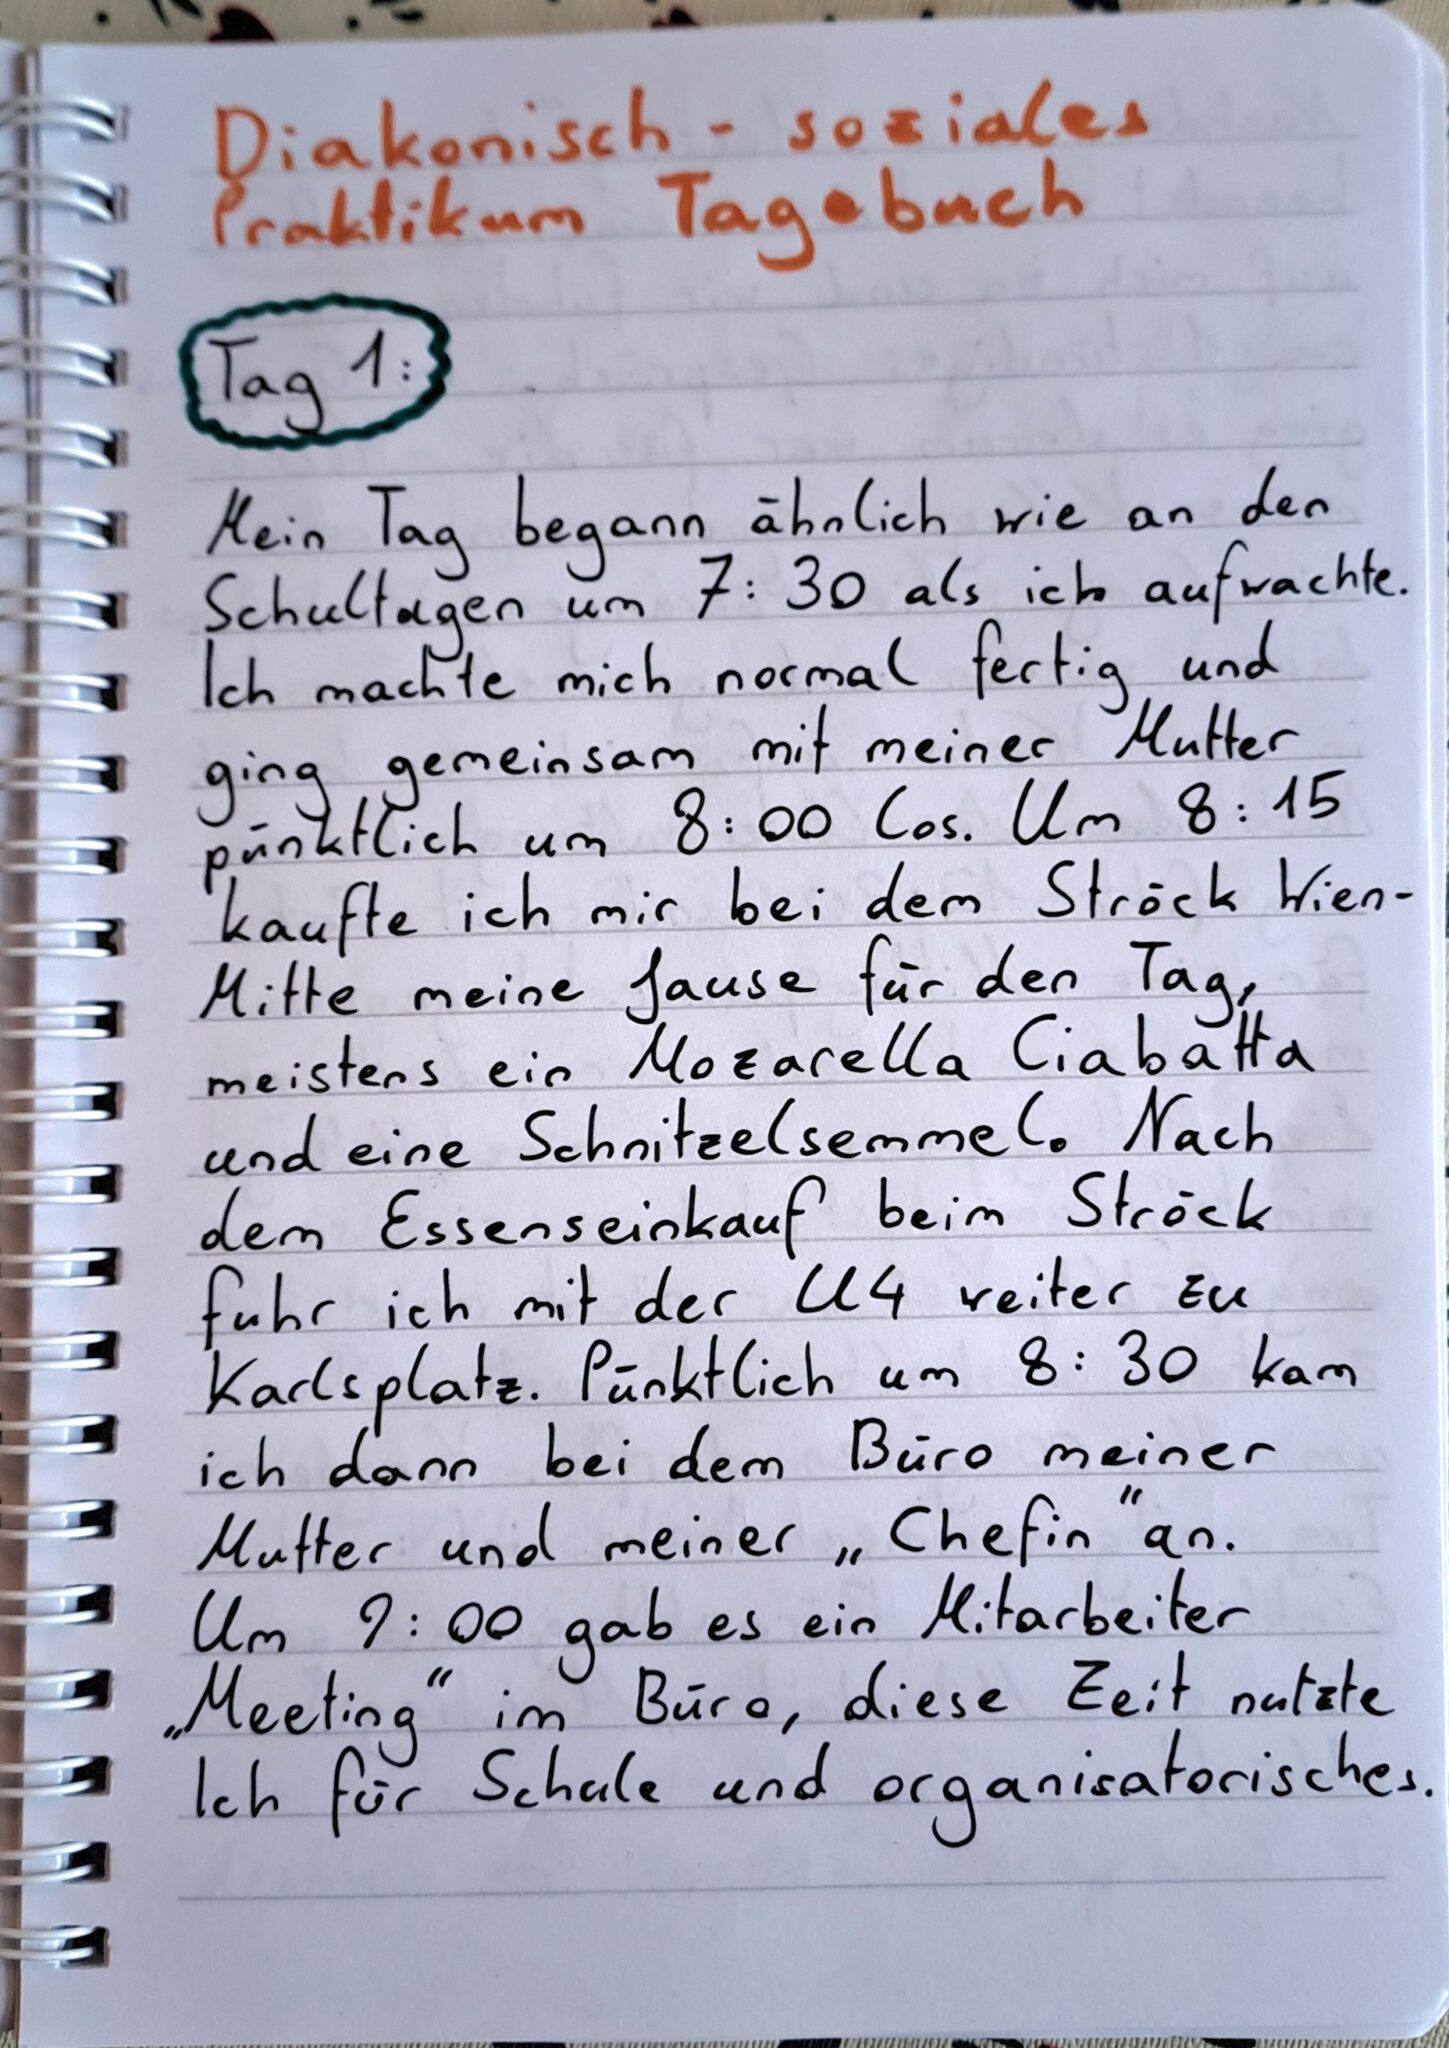 Diakonisch - soziales
Praktikum Tagebuch
Tag 1:
Mein Tag begann ähnlich wie an den
Schultagen um 7:30 als ich aufwachte.
Ich machte mich normal fertig und
ging gemeinsam mit meiner Mutter
pünktlich um 8:00 los. Um 8:15
kaufte ich mir bei dem Ströck Wien-
Mitte meine Jause für den Tag,
meistens ein Mozarella Ciabatta
und eine Schnitzelsemmel. Nach
dem Essenseinkauf beim Ströck
fuhr ich mit der U4 weiter zu
Karlsplatz. Pünktlich um 8:30 kam
ich dann bei dem Büro meiner
Mutter und meiner „Chefin“ an.
Um 9:00 gab es ein Mitarbeiter
„Meeting“ im Büro, diese Zeit nutzte
Ich für Schule und organisatorisches.